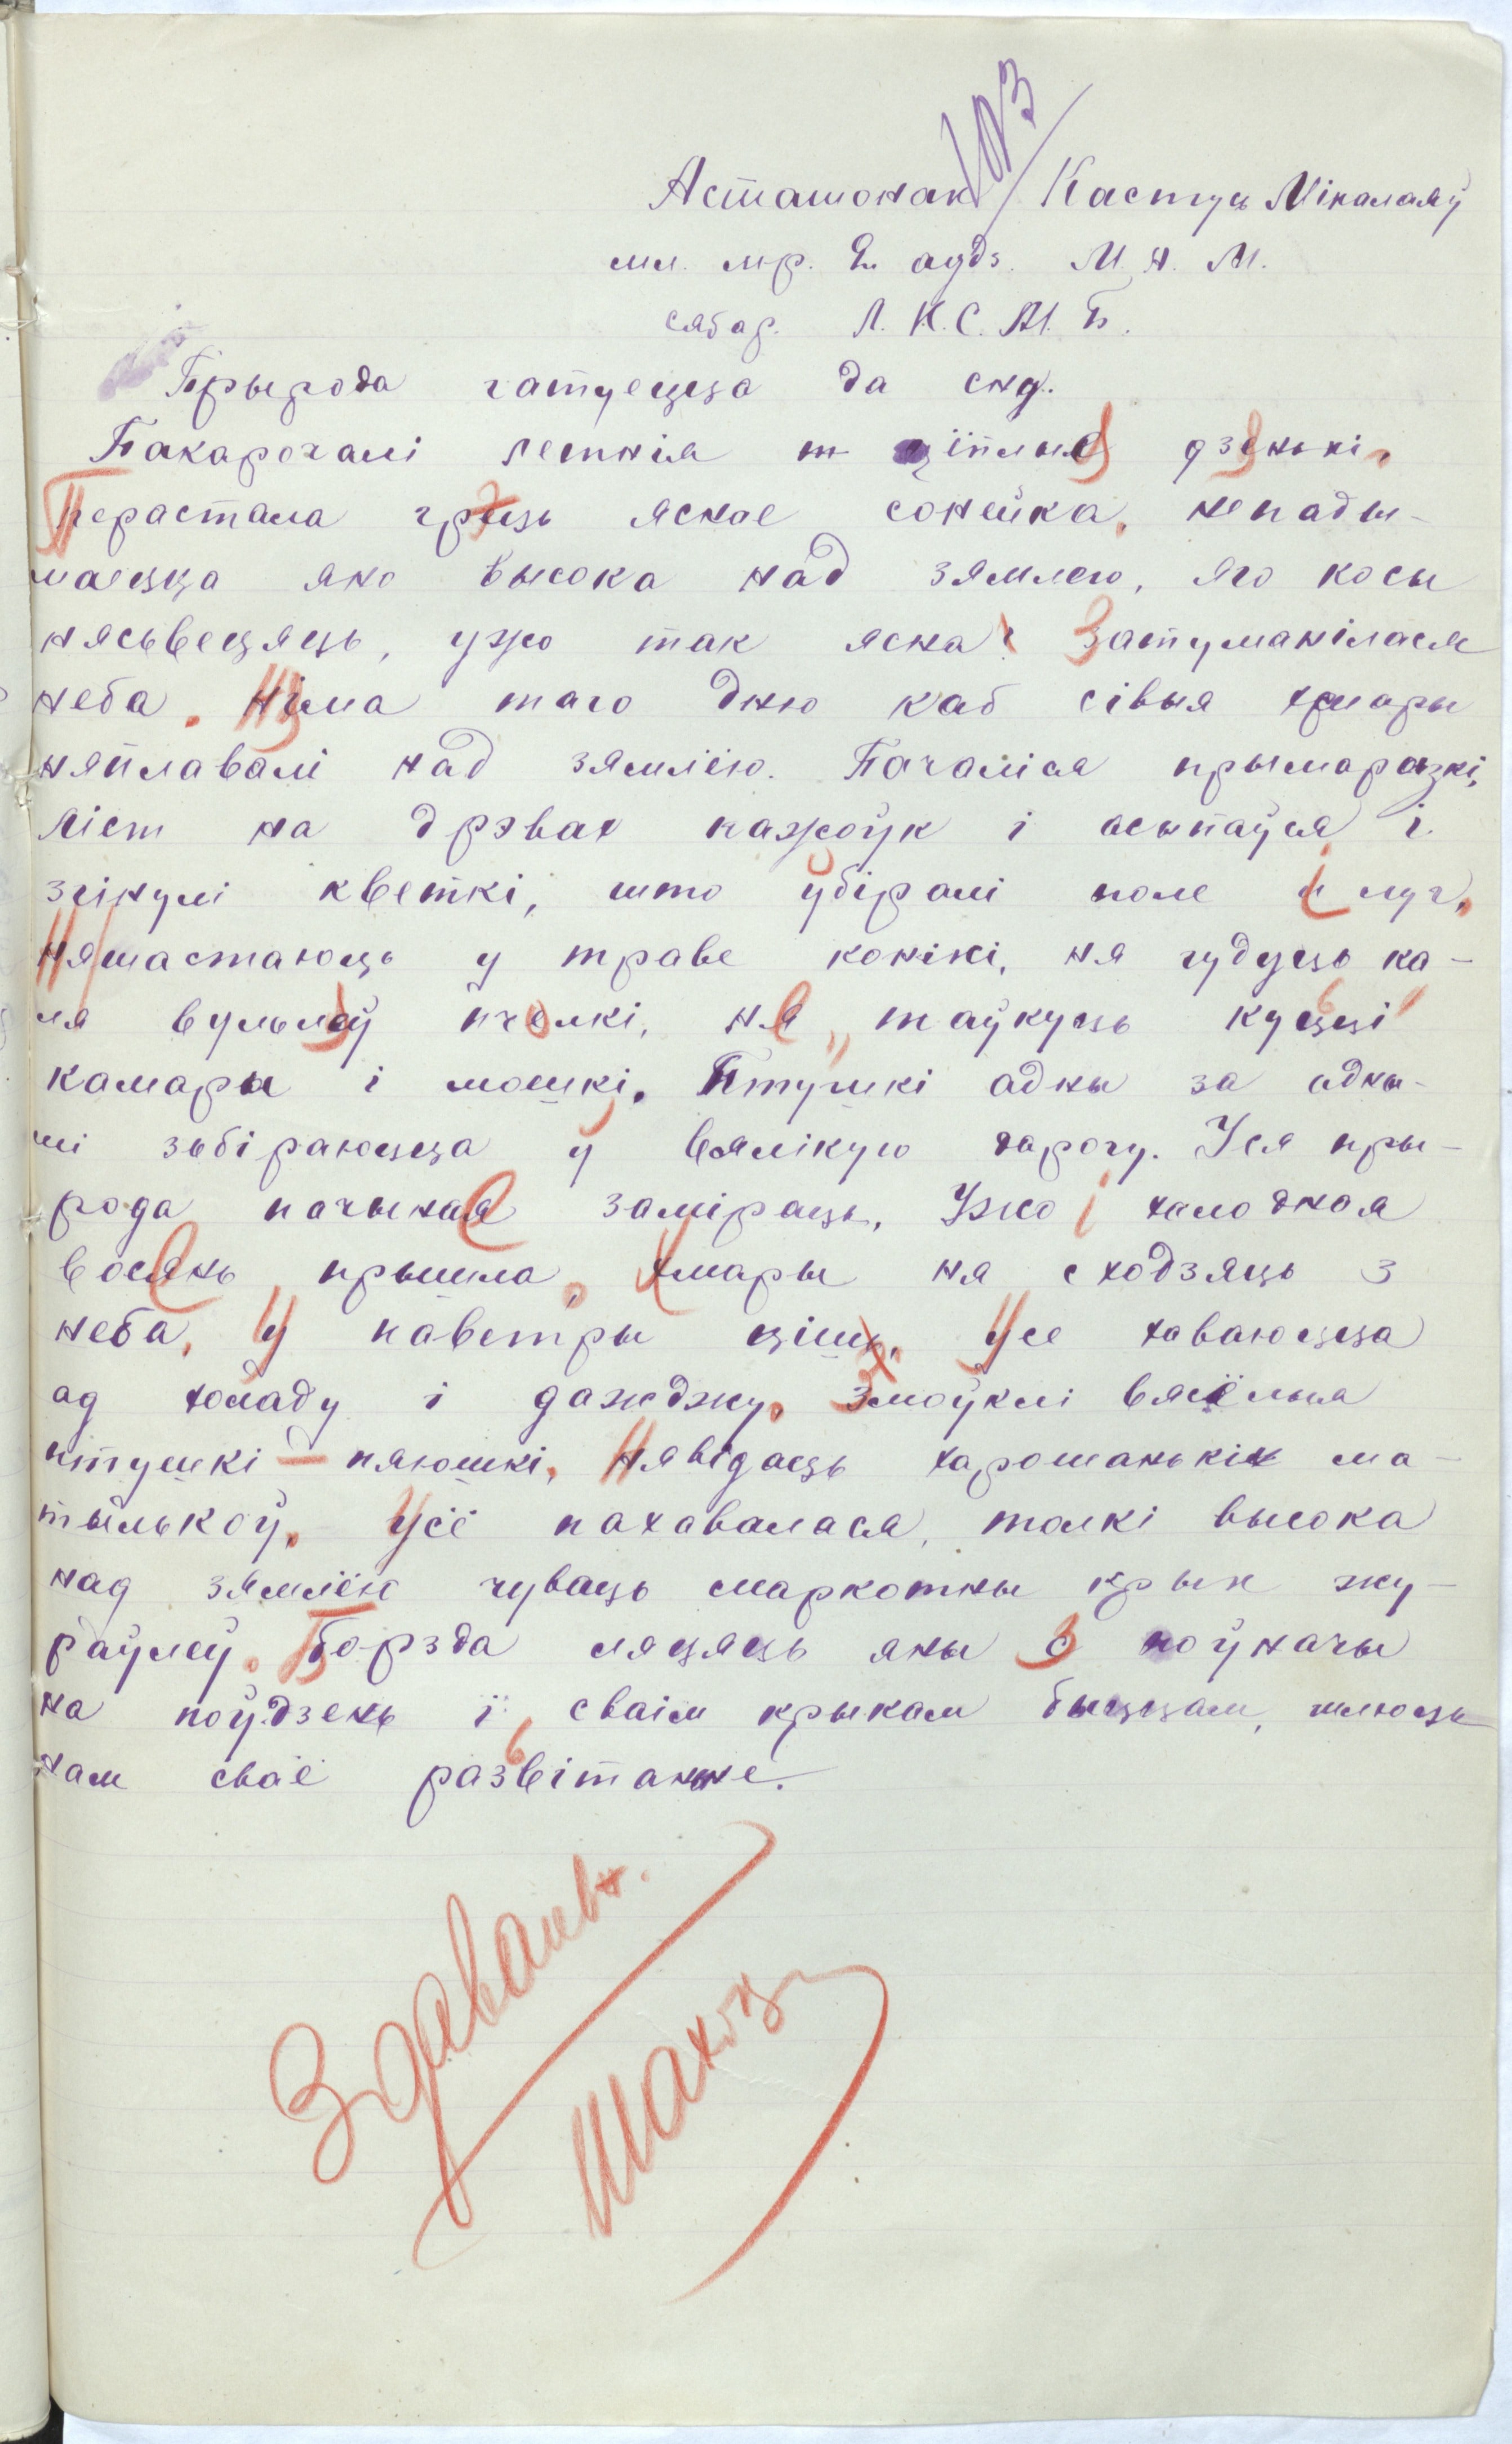 103
Асташонак Кастусь Мікалаяў
мл. мр. 2. аддз. М. Н. М.
сябар. Л. К. С. М. Б.
Прырода гатуецца да сну.
Пакарочалі летнія т цёплые дзенькі.
Перастала грэць яснае сонейка, непады-
маецца яно высока над зямлею, яго косы
нясьвецяць, ужо так ясна. Затуманілася
неба. Німа таго дню каб сівыя хмары
няплавалі над зямлёю. Пачаліся прымаразкі,
ліст на дрэвах пажоўк і асыпаўся і
згінулі кветкі, што ўбіралі поле і луг,
няшастаюць у траве конікі, ня гудуць ка-
ля вульлёў пчолкі, не таўкуць куцьці
камары і мошкі. Птушкі адны за адны-
мі зьбіраюцца ў вялікую дарогу. Уся пры-
рода пачынае заміраць, Ужо і халодная
восень прышла, хмары ня сходзяць з
неба, у паветры ціш, усе хаваюцца
ад холаду і дажджу. Змоўклі вясёлыя
птушкі — пяюшкі, нявідаць харошанькіх ма-
тылькоў. Усё пахавалася, толкі высока
над зямлёю чуваць маркотны крык жу-
раўлеў. Борзда ляцяць яны з поўначы
на поўдзень і сваім крыкам быццам, шлюць
нам сваё разьвітаньне.
Здавальн.